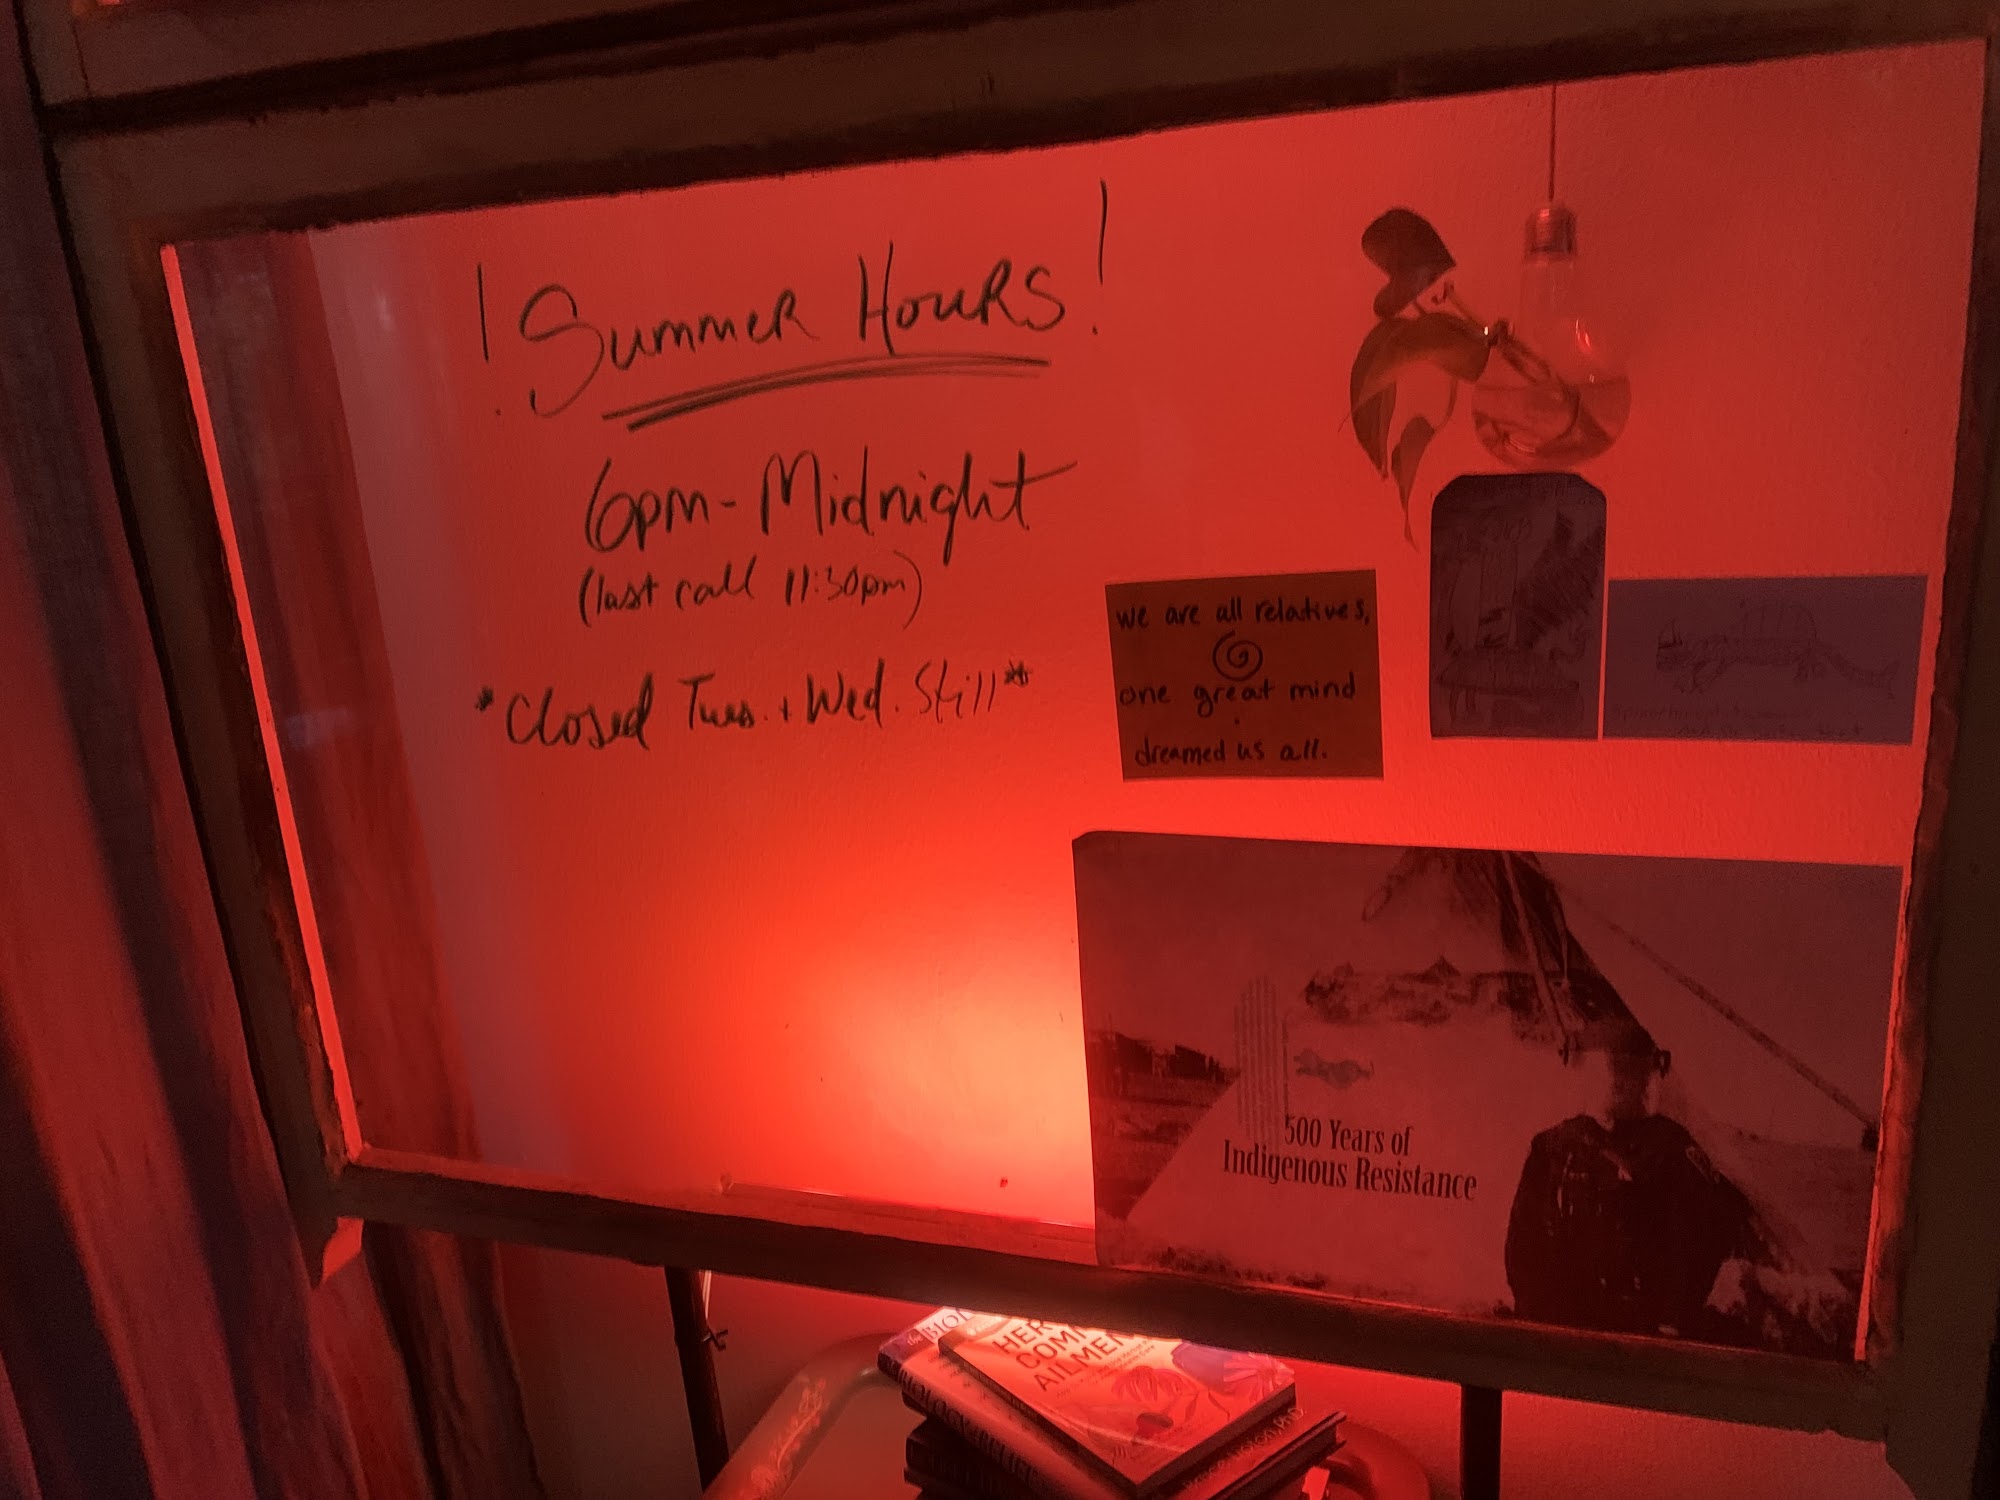 ! Summer Hours !
6pm - Midnight
(last call 11:30pm)
*Closed Tues. + Wed. Still*
we are all relatives,
one great mind
dreamed us all.
500 Years of
Indigenous Resistance
the BIO
HER
COMM
AILMEN
BIOLOGY of BELIEF
Bruce Lipton, Ph.D.